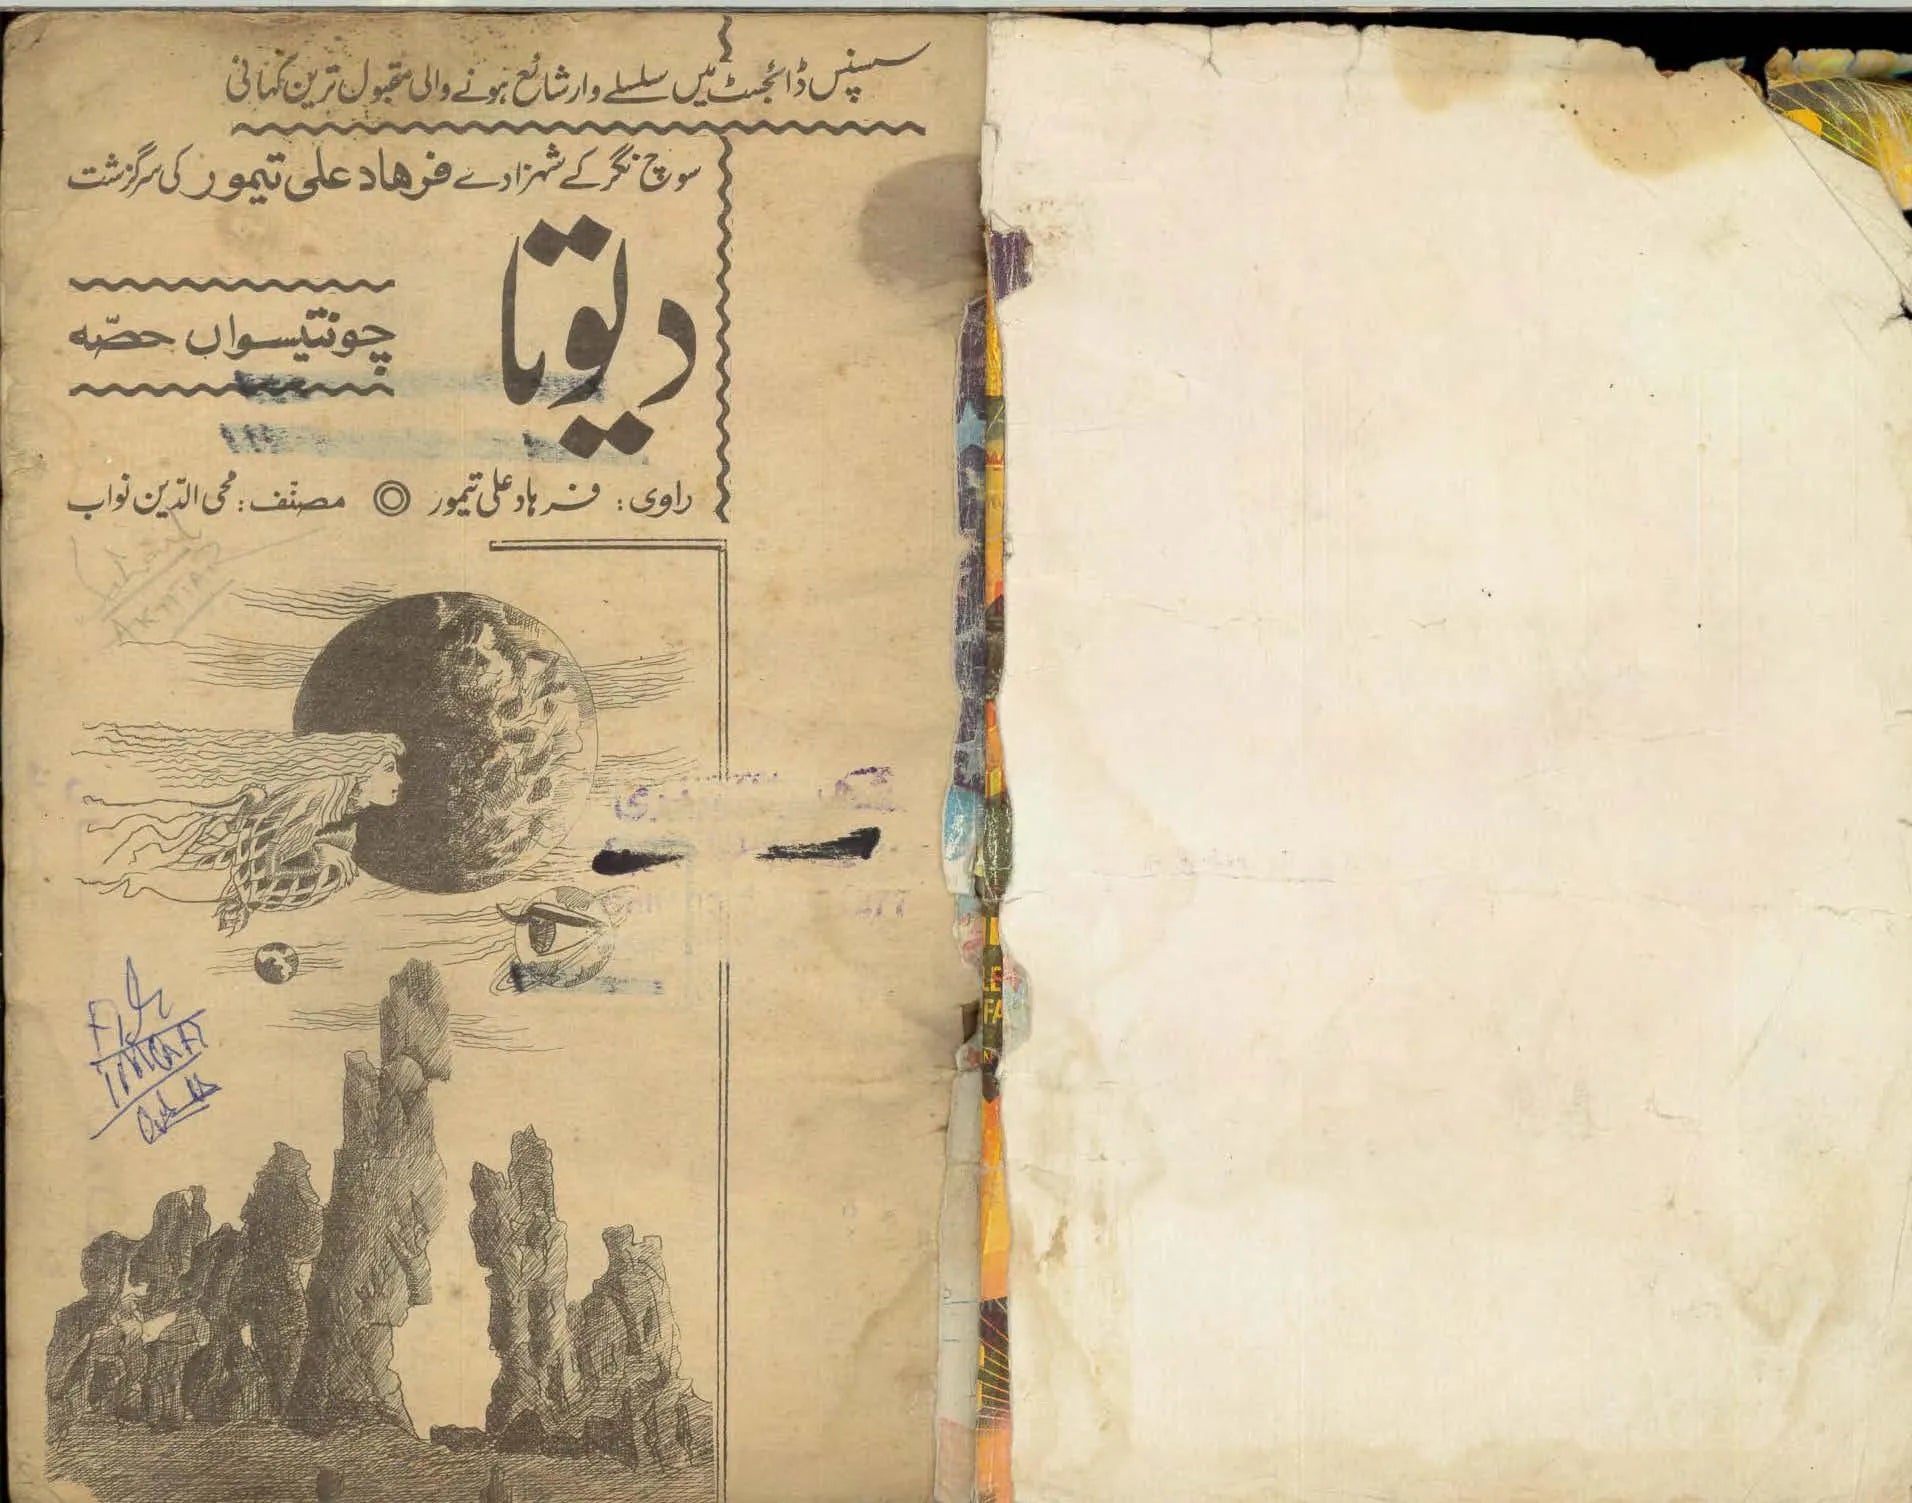 سسپنس ڈائجسٹ میں سلسلے وار شائع ہونے والی مقبول ترین کہانی
سوچ نگر کے شہزادے فرہاد علی تیمور کی سرگزشت
دیوتا
چونتیسواں حصّہ
راوی: فرہاد علی تیمور ◎ مصنّف: محی الدّین نواب
AKHTAR